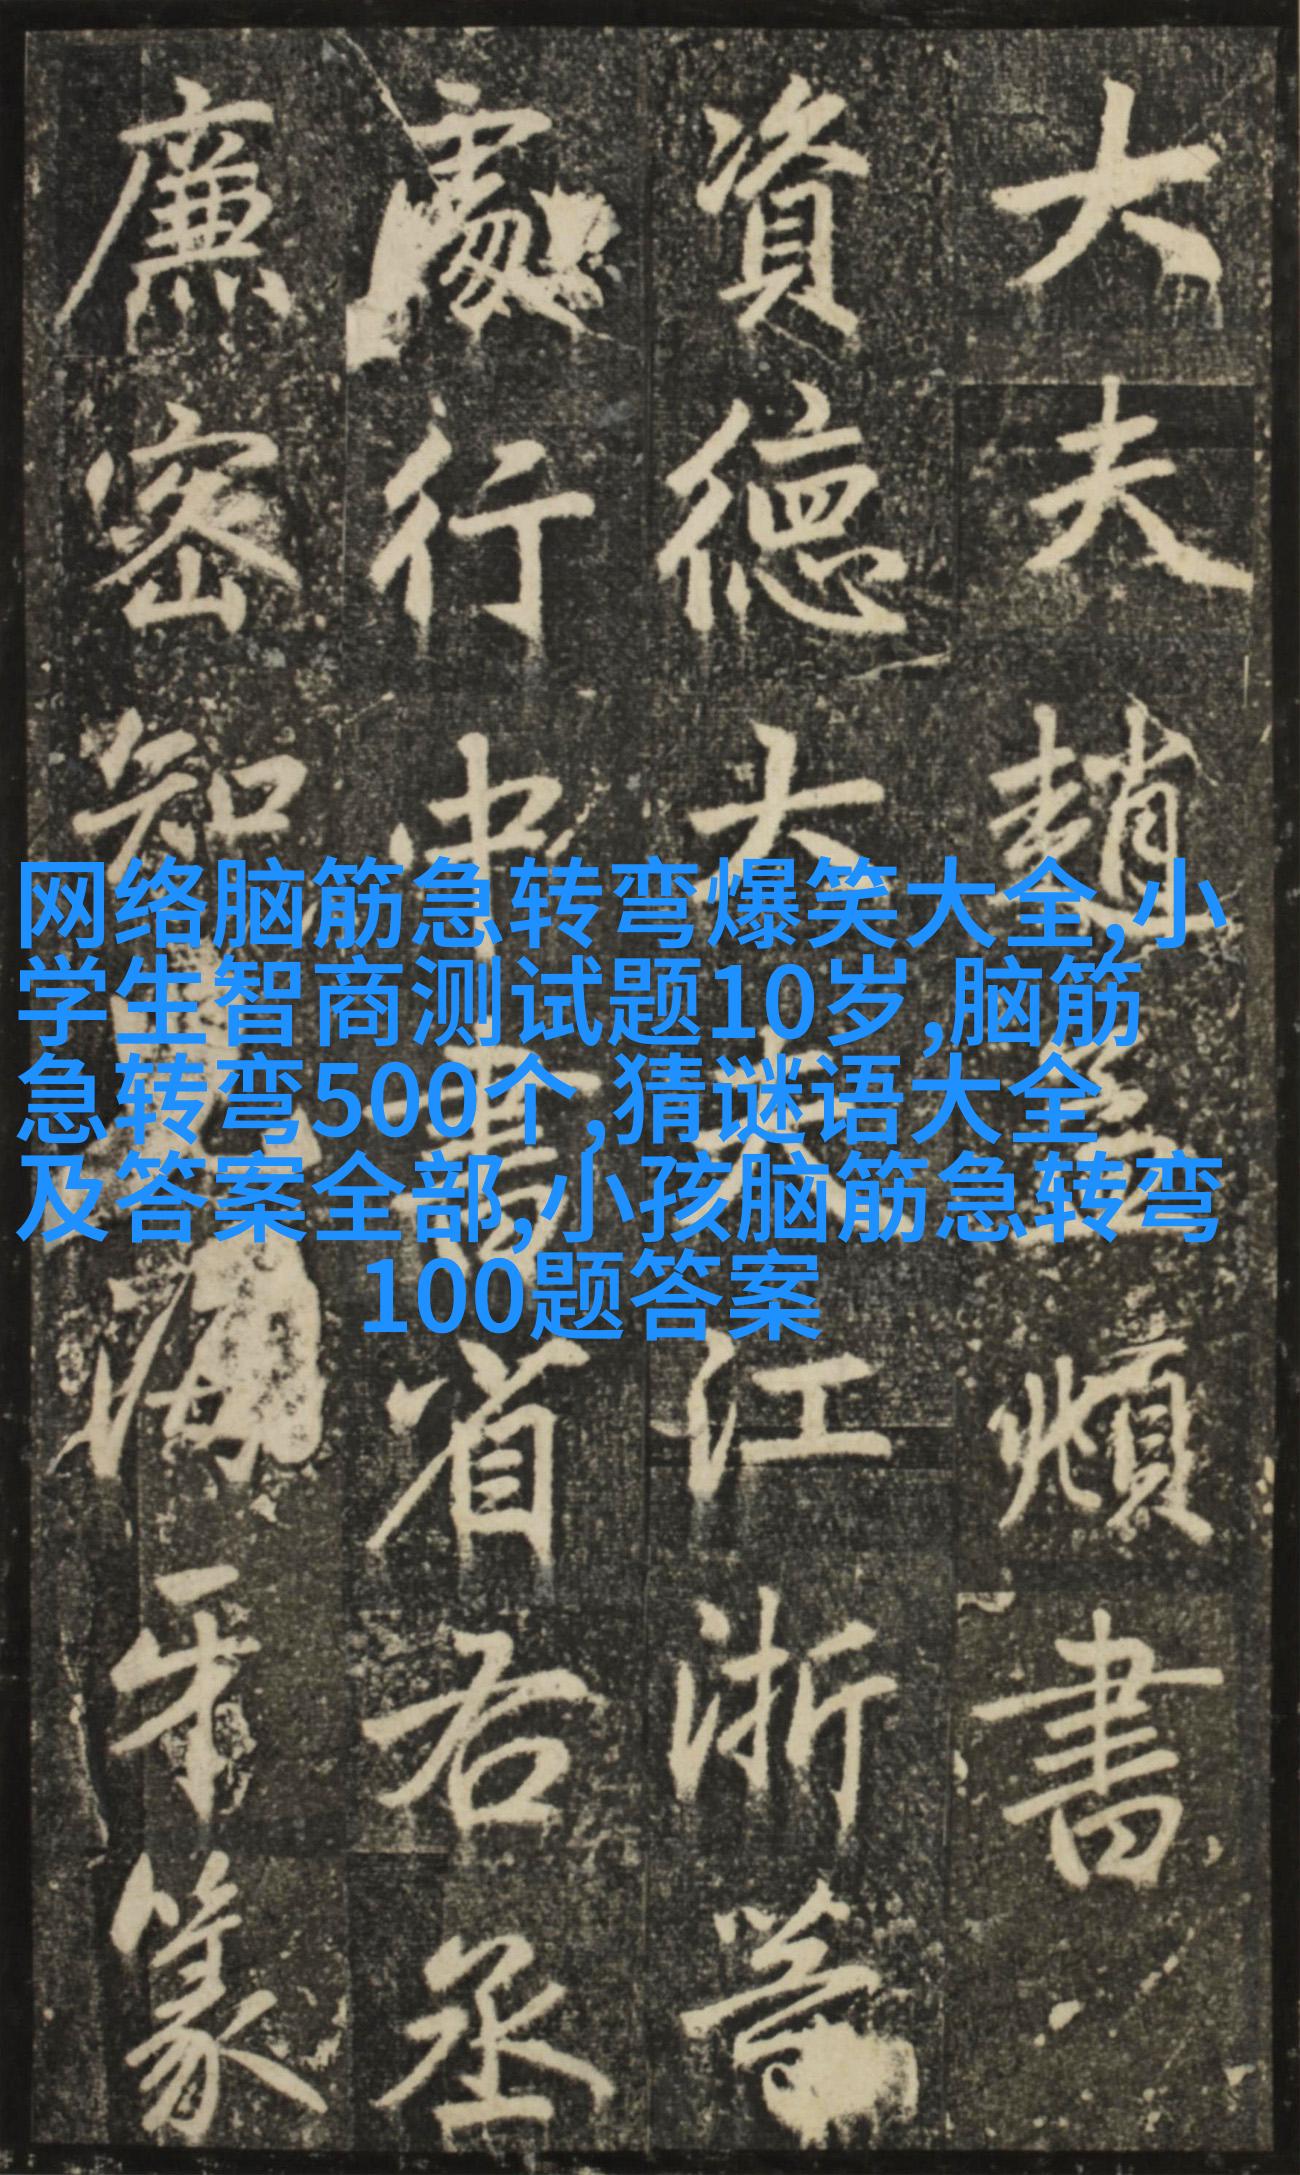 网络脑筋急转弯爆笑大全,小
学生智商测试题10岁,脑筋
急转弯500个,猜谜语大全
及答案全部,小孩脑筋急转弯
100题答案
大夫趙孟頫書
資德大夫江浙等
處行中書省右丞
廉密知海牙篆